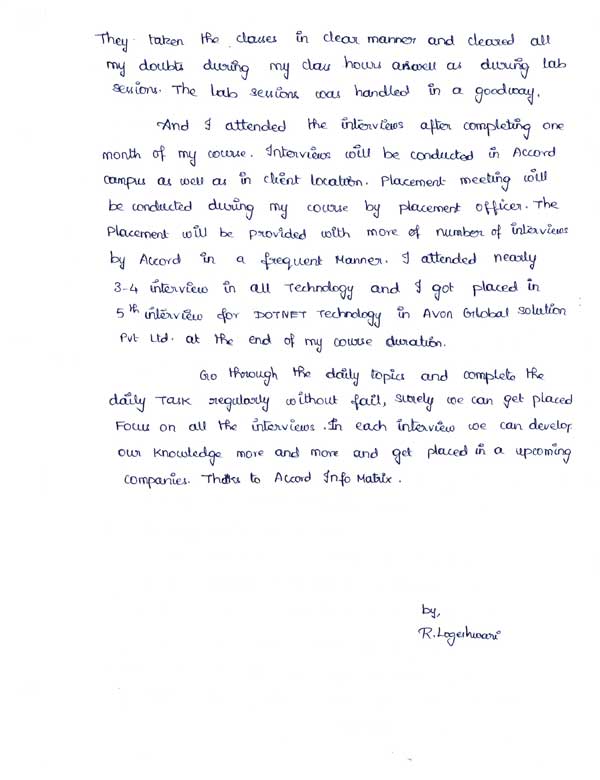 They taken the classes in clear manner and cleared all
my doubts during my class hours as well as during lab
sessions. The lab sessions was handled in a goodway.
And I attended the interviews after completing one
month of my course. Interviews will be conducted in Accord
campus as well as in client location. Placement meeting will
be conducted during my course by placement officer. The
Placement will be provided with more of number of interviews
by Accord in a frequent Manner. I attended nearly
3-4 interview in all Technology and I got placed in
5th interview for DOTNET Technology in Avon Global Solution
Pvt Ltd. at the end of my course duration.
Go through the daily topics and complete the
daily Task regularly without fail, surely we can get placed
Focus on all the interviews. In each interview we can develop
our knowledge more and more and get placed in a upcoming
companies. Thnks to Accord Info Matrix.
by,
R. Logeshwari